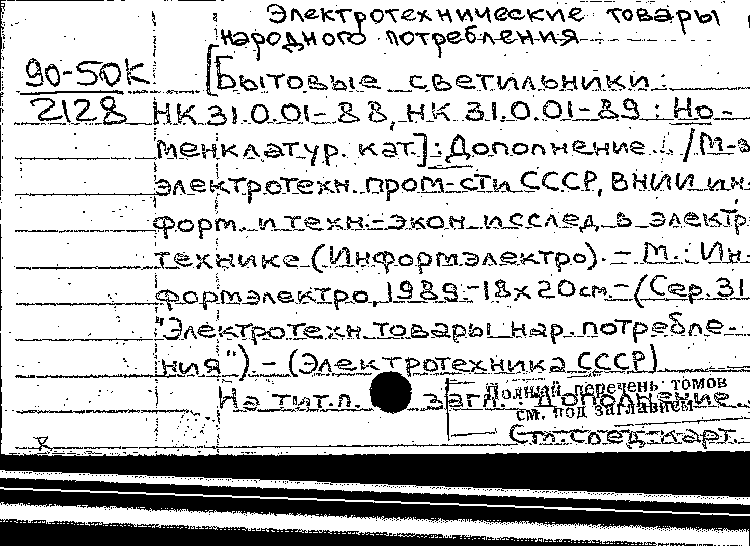 Электротехнические товары
народного потребления
90-50К
2128
[Бытовые светильники:
НК 31.0.01-88, НК 31.0.01-89: Но-
менклатур. кат.]: Дополнение. / М-во
электротехн. пром-сти СССР, ВНИИ ин-
форм. и техн.-экон. исслед. в электро
технике (Информэлектро). – М.: Ин-
формэлектро, 1989.-18х20см.-(Сер. 31
"Электротехн. товары нар. потребле-
ния") – (Электротехника СССР)
На тит.л. загл.: Дополнение.
Полный перечень томов
см. под заглавием
См. след. карт.